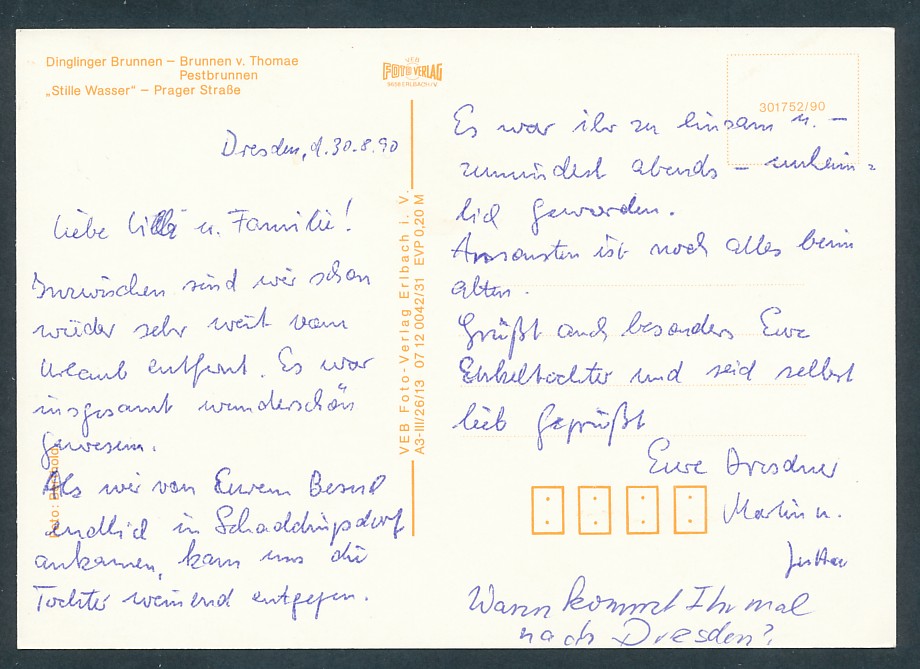 Dinglinger Brunnen – Brunnen v. Thomae
Pestbrunnen
„Stille Wasser" – Prager Straße
VEB
FOTO VERLAG
9659 ERLBACH i/V
301752/90
Dresden, d. 30.8.90
Liebe Lilli u. Familie!
Inzwischen sind wir schon
wieder sehr weit vom
Urlaub entfernt. Es war
insgesamt wunderschön
gewesen.
Als wir von Eurem Besuch
endlich in Schaddingsdorf
ankamen, kam uns die
Tochter weinend entgegen.
Foto:
VEB Foto-Verlag Erlbach i. V.
A3-III/26/13 07 12 0042/31 EVP 0,20 M
Es war ihr zu einsam u. –
zumindest abends – unheim=
lich geworden.
Ansonsten ist noch alles beim
alten.
Grüßt auch besonders Eure
Enkeltochter und seid selbst
lieb gegrüßt
Eure Dresdner
Martin u.
Jutta
Wann kommt Ihr mal
nach Dresden?